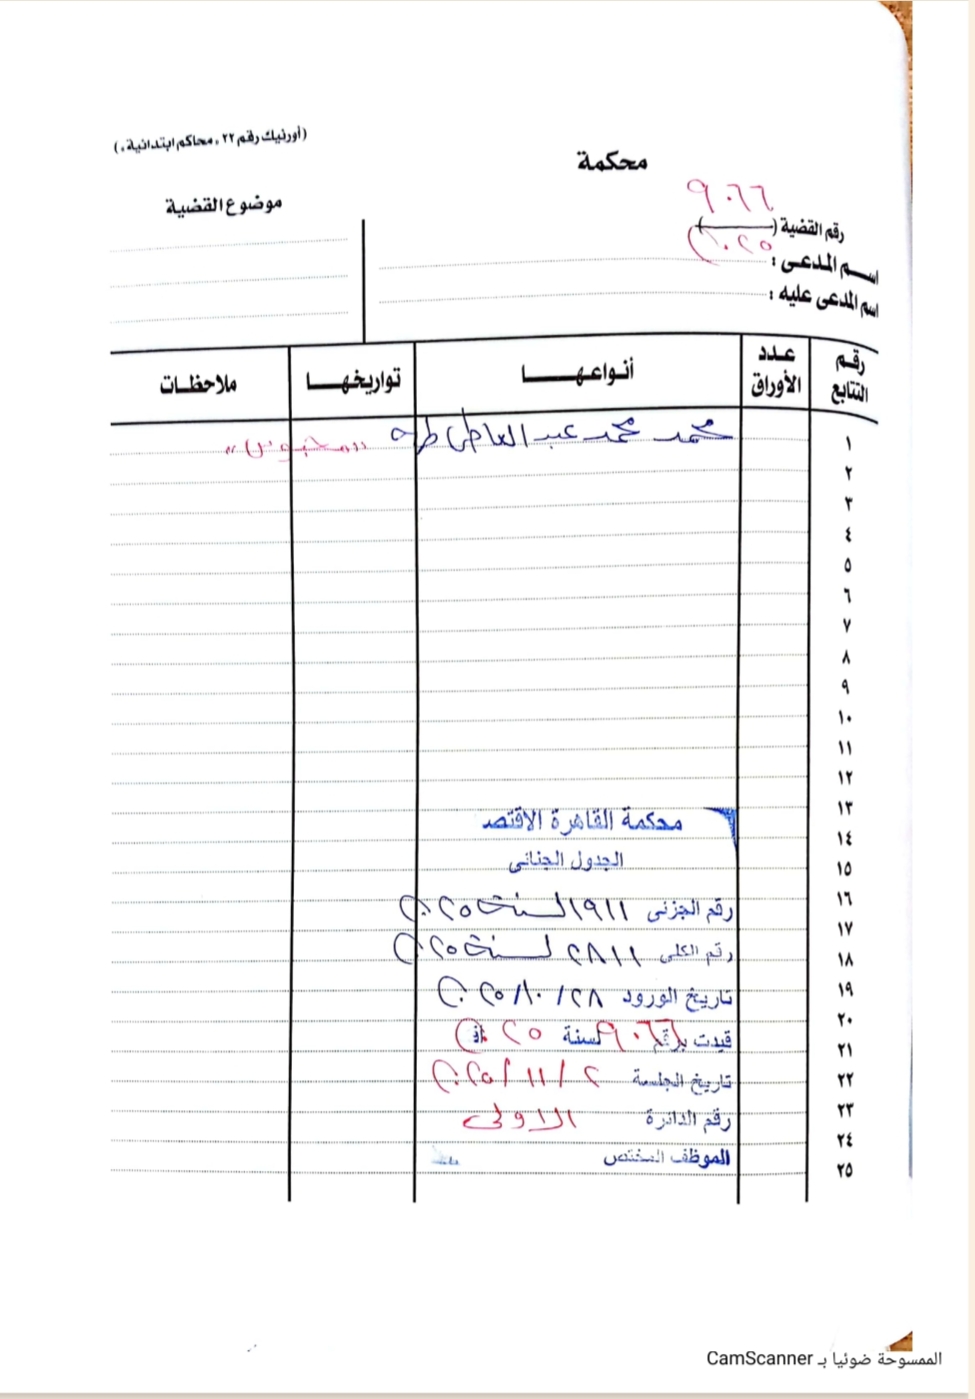 (أورنيك رقم ٢٢ ، محاكم ابتدائية ،)
محكمة
موضوع القضية
رقم القضية (٩٠٦٦ / ٢٠٢٥)
اسـم المدعـى :
اسم المدعى عليه :
رقـم التتابع عـدد الأوراق أنـواعهـــا تواريخهـــا ملاحظـات
١ محمد محمد عبد العاطي طه "محبوس"
٢
٣
٤
٥
٦
٧
٨
٩
١٠
١١
١٢
١٣
محكمة القاهرة الاقتصـ
١٤
الجدول الجنائى
١٥
١٦
رقم الجزئى ١٩١١ لسنة ٢٠٢٥
١٧
رقم الكلى ٢٨١١ لسنة ٢٠٢٥
١٨
١٩
تاريخ الورود ٢٨/١٠/٢٠٢٥
٢٠
قيدت برقم ٩٠٦٦ لسنة ٢٠٢٥
٢١
تاريخ الجلسة ٢/١١/٢٠٢٥
٢٢
٢٣
رقم الدائرة الاولى
٢٤
الموظف المختص
٢٥
الممسوحة ضوئيا بـ CamScanner